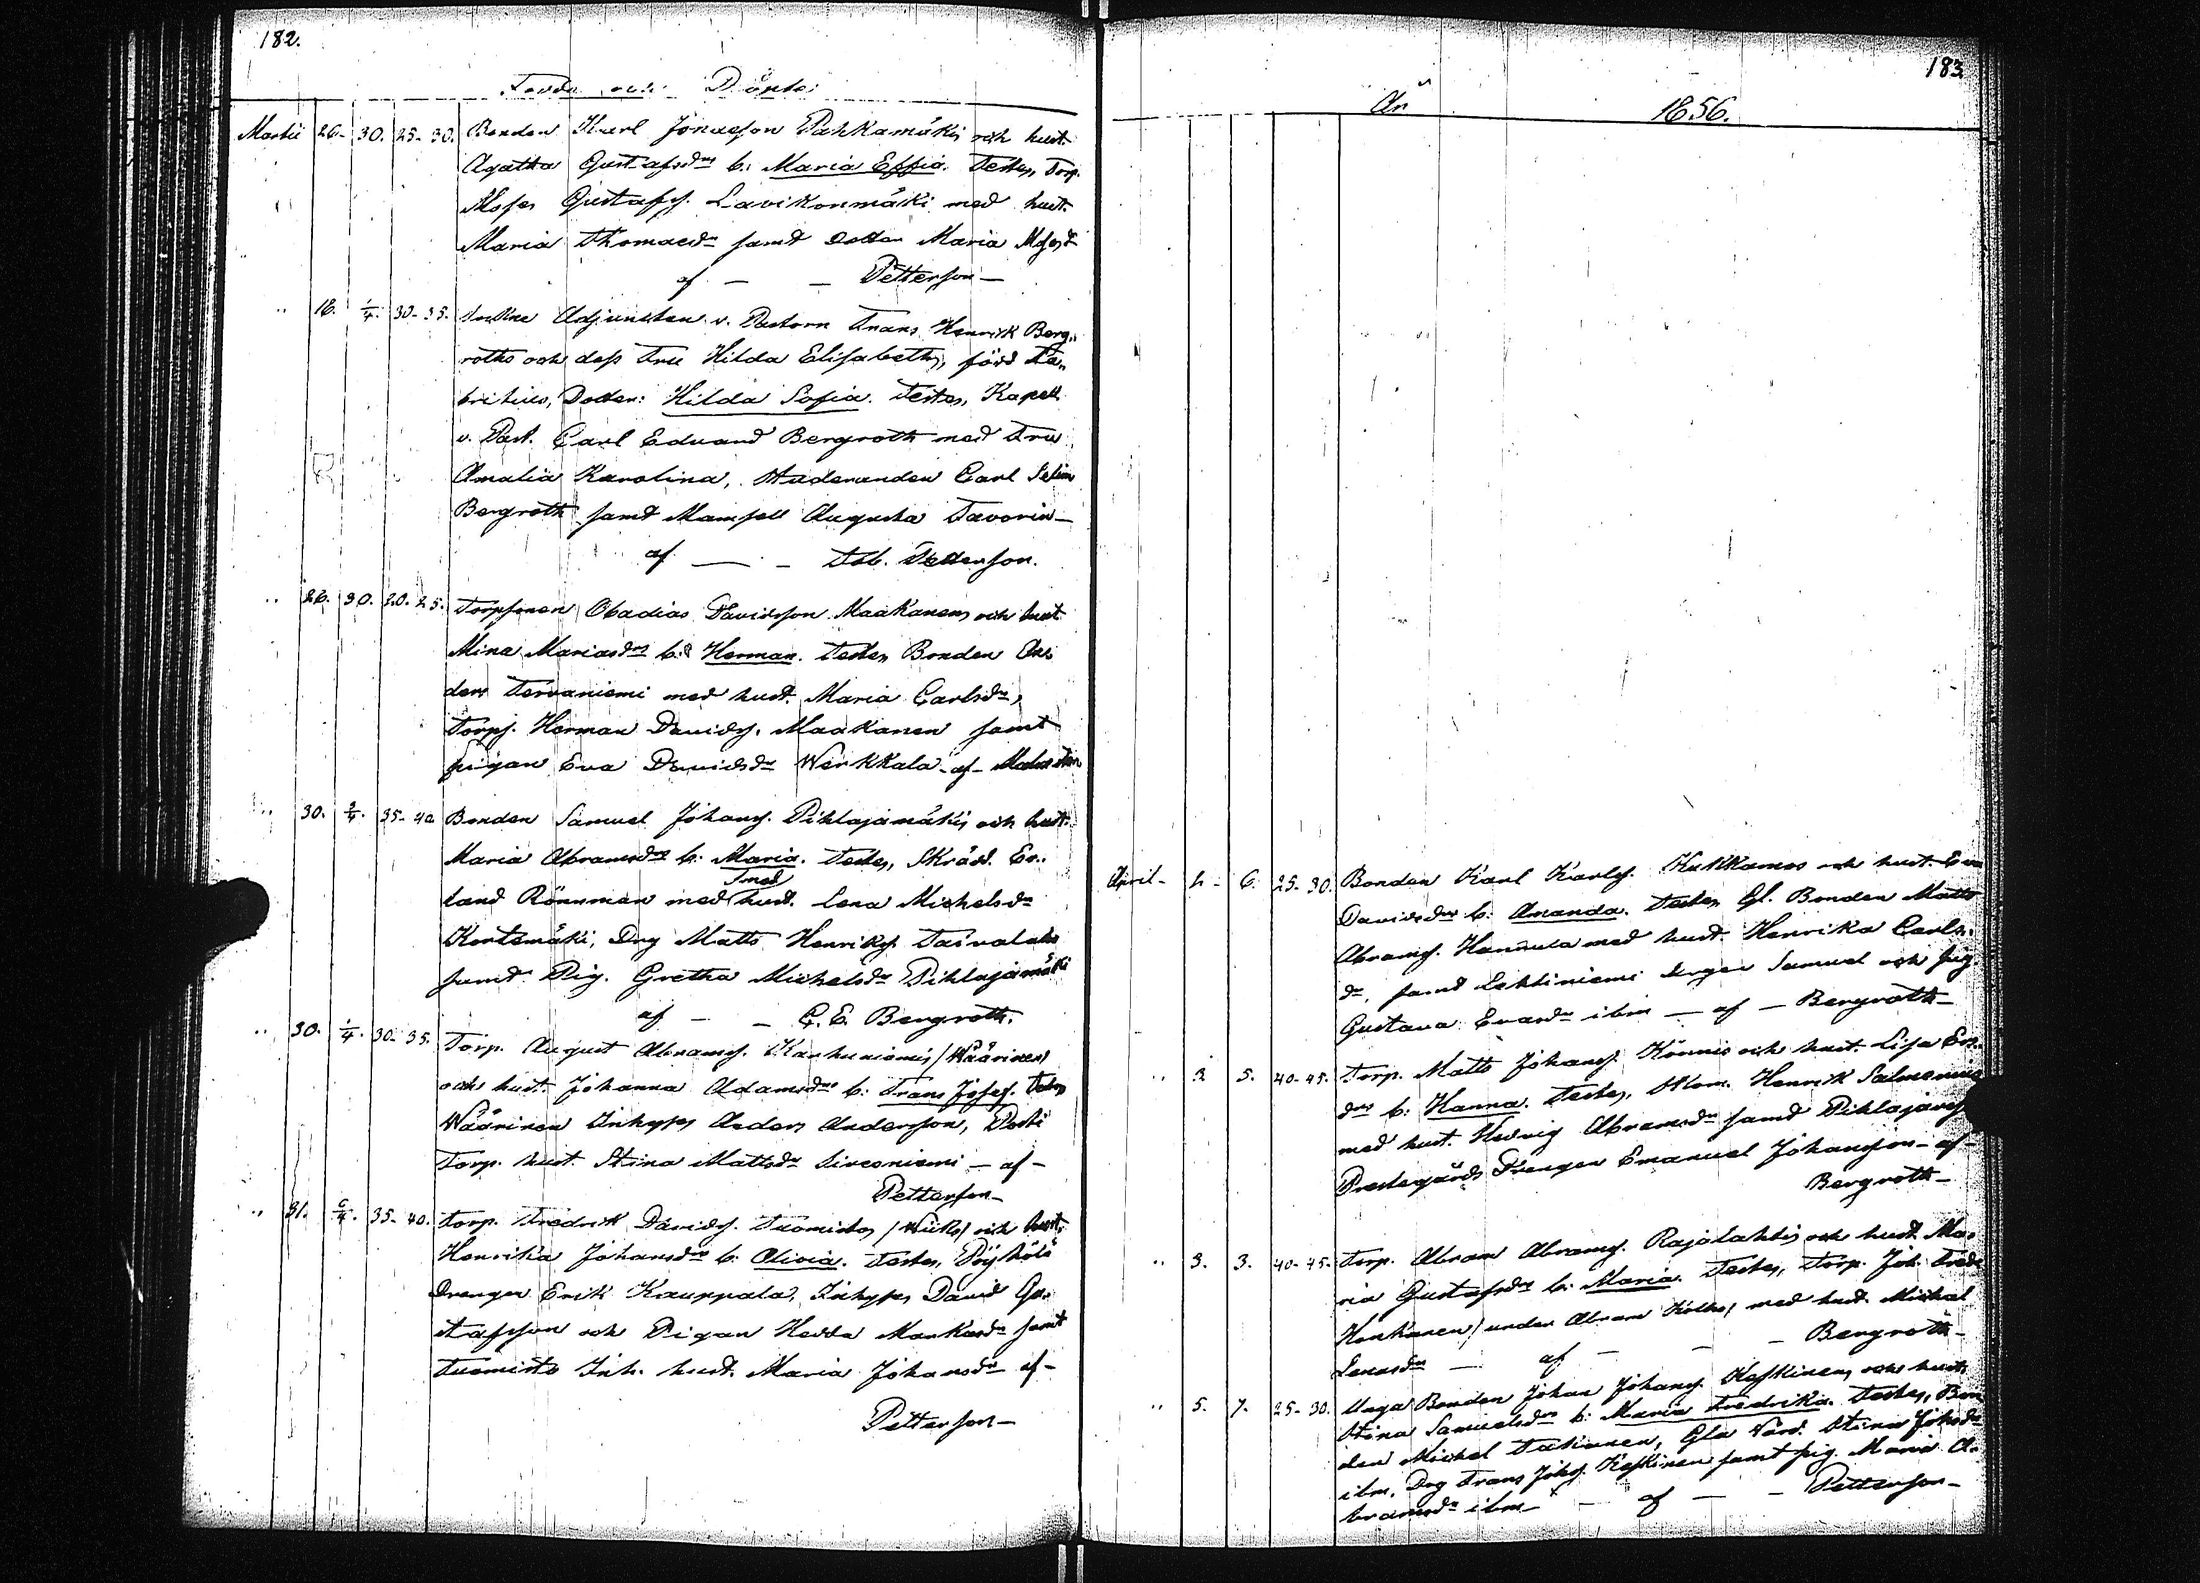 182.
Födde och Döpte
Martii 26. 30. 25-30. Bonden Karl Jonasson Pahkamäki och hust.
Agatha Gustafsdrs b: Maria Effia. Testes, Torp.
Moses Gustafss. Lavikonmäki med hust.
Maria Thomasdr samt dotter Maria
af — — Petterson —
" 18. 1/4. 30-35. Adjunkten v. Pastorn Frans Henrik Berg„
roths och dess Fru Hilda Elisabeths, född Fa„
britius, Dotter: Hilda Sofia. Testes, Kapell.
v. Past. Carl Eduard Bergroth med Fru
Amalia Karolina, Studeranden Carl Selim
Bergroth samt Mamsell Augusta Favorin —
af — — Petterson.
" 26. 30. 20-25. Torpsonen Obadias Davidsson Maakanens och hust
Mina Mariasdrs b: Herman. Testes Bonden
Tervaniemi med hust. Maria Carlsdr,
Torps. Herman Davids. Maakanen samt
pigan Eva Davidsdr Werkkala - af -
" 30. 2/4. 35-40 Bonden Samuel Johans. Pihlajamäkis och hust.
Maria Abramsdrs b: Maria. Testes, Skräd. Er„
land Rönnman med Smed hust. Lena Michelsdr
Kortsmäki, Drg Matts Henriks.
samt Pig. Gretha Michelsdr Pihlajamäki
af — — C. E. Bergroth.
" 30. 1/4. 30-35. Torp. August Abrams. Karhuniemis /Wäärinen/
och hust. Johanna Adamsdrs b: Frans Josef. Testes
Wäärinen Inhyses Anders Andersson,
Torp. hust. Stina Mattsdr Sirconiemi — af —
Petterson —
" 31. 6/4. 35-40. Torp. Fredrik Davids. Tuomistos /Wiiks/ och hust.
Henrika Johansdrs b: Olivia. Testes,
Drengen Erik Kauppala, Inhyses David Gu„
stafsson och Pigan Hedda Markusdr samt
Tuomisto Inh. hust. Maria Johansdr — af —
Petterson —
183
År 1856.
April - 2 - 6. 25-30. Bonden Karl Karls. Kukkamos och hust. Eva
Davidsdrs b: Amanda. Testes Gl. Bonden Matts
Abrams. Hannula med hust. Henrika Carls„
dr, samt Lehtiniemi drengen Samuel och Pig.
Gustava Evasdr ibm — af — Bergroth —
" 3. 5. 40-45. Torp. Matts Johans. Könnis och hust. Lisa
drs b: Hanna. Testes, Henrik Salmenius
med hust. Hedvig Abramsdr samt
Prestegårds Drengen Emanuel Johansson — af —
Bergroth —
" 3. 3. 40-45. Torp. Abram Abrams. Rajalahtis och hust. Ma„
ria Gustafsdrs b: Maria. Testes, Torp. Joh.
Honkanen /under Abram / med hust. Michel
Lenasdr — af — — Bergroth —
" 5. 7. 25-30. Unga Bonden Johan Johans. Keskinens och hust.
Stina Samuelsdrs b: Maria Fredrika. Testes, Bon
den Michel Takinen, Gla Värd. Stina Johsdr
ibm, Drg Frans Johs. Keskinen samt pig. Maria A„
bramsdr ibm — af — — Petterson —